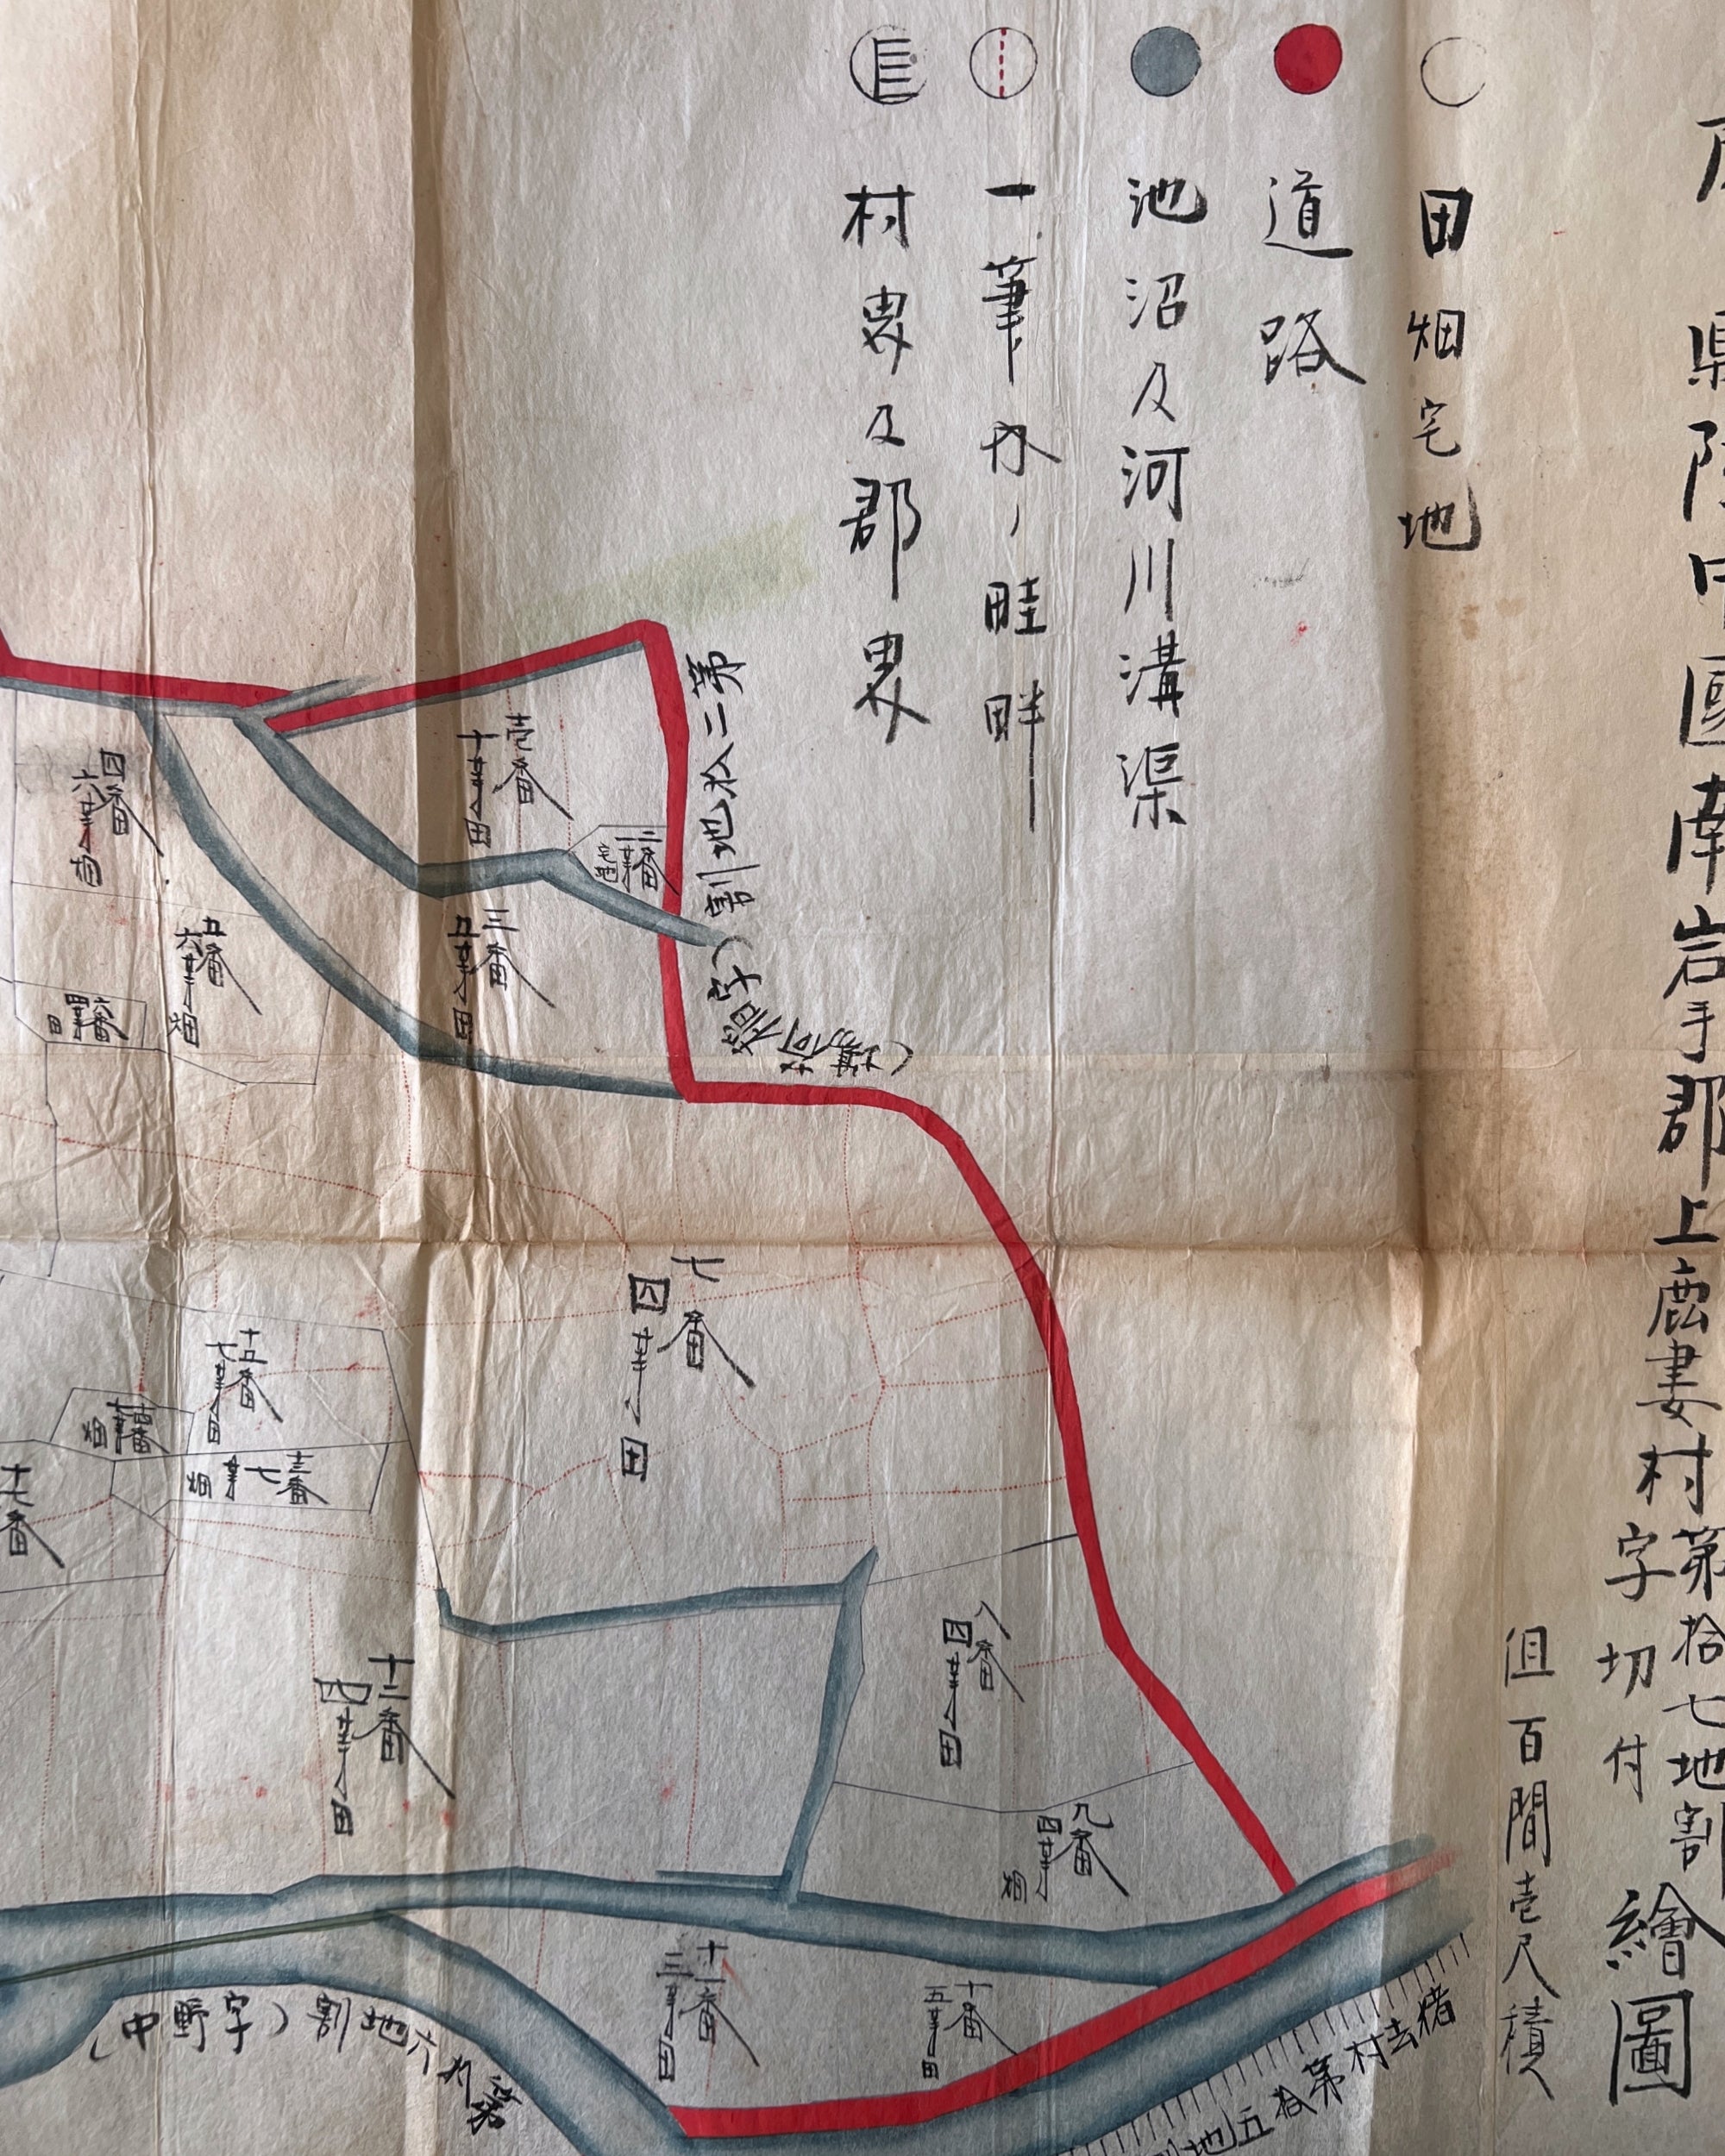 縣陸中國南岩手郡上鹿妻村第拾七地割
字切付
繪圖
但百間壱尺積
田畑宅地
道路
池沼及河川溝渠
一筆内ノ畦畔
村界及郡界
壱番
十等田
二番
一等
宅地
三番
五等田
四番
六等畑
五番
六等畑
六番
四等
田
七番
四等田
八番
四等田
九番
四等
畑
十番
五等田
十一番
三等田
十二番
四等田
十三番
七等
畑
十五番
七等田
畑
十七番
第二拾二地割
(字稲荷場)
第拾六地割(字野中)
猪去村第拾五地